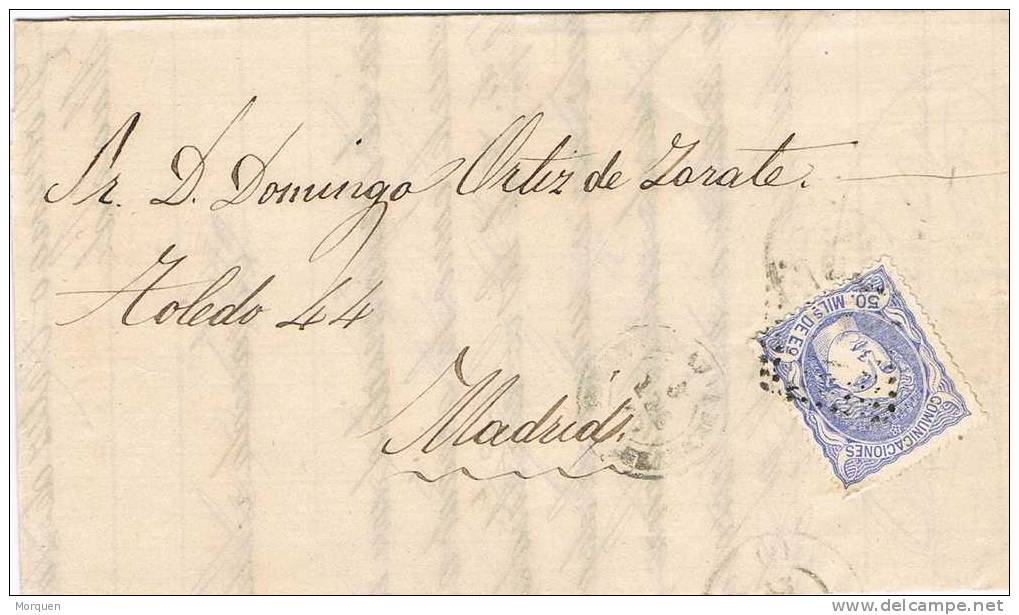 Sr. D. Domingo Ortiz de Zarate.
Toledo 44
Madrid.
50. MILS DE EO
COMUNICACIONES
Morquen
delcampe.net